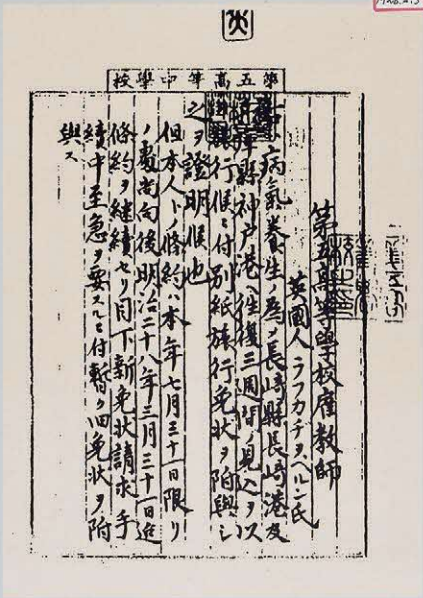 第五高等中學校
第五高等學校雇教師
英國人 ラフカヂヲヘルン氏
病氣養生ノ為メ長崎縣長崎港及
縣神戸港ヘ往復三週間ノ見込ヲ以
旅行候ニ付別紙旅行免狀ヲ附與シ
之ヲ證明候也
但本人トノ條約ハ本年七月三十一日限リ
ノ處尚向後明治二十八年三月三十一日迄
條約ヲ継續セリ目下新免狀請求手
續中至急ヲ要スルニ付暫ク旧免狀ヲ附
與ス